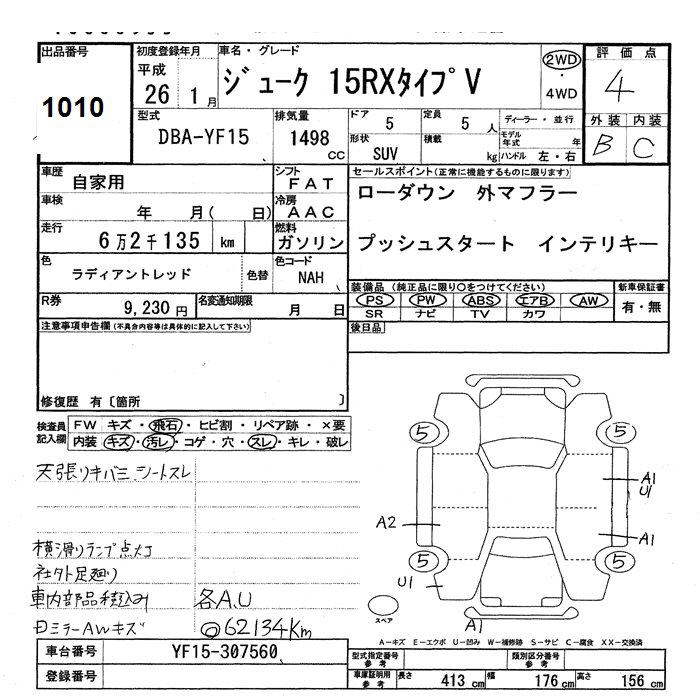 出品番号
1010
初度登録年月
平成
26 1 月
車名・グレード
ジューク 15RXタイプV
2WD
・
4WD
評価点
4
外装 内装
B C
型式
DBA-YF15
排気量
1498
CC
ドア
5
定員
5 人
形状
SUV
積載
kg
ディーラー・並行
モデル
年式 年
ハンドル 左・右
車歴
自家用
シフト
FAT
車検
年 月( 日)
冷房
AAC
走行
6万2千135 km
燃料
ガソリン
色
ラディアントレッド
色替
色コード
NAH
R券
9,230円
名変通知期限
月 日
セールスポイント(正常に機能するものに限ります)
ローダウン 外マフラー
プッシュスタート インテリキー
装備品(純正品に限り○をつけてください)
PS PW ABS エアB AW
SR ナビ TV カワ
新車保証書
有・無
後日品
注意事項申告欄(不具合内容等は具体的に記入して下さい)
修復歴 有〔箇所 〕
検査員
記入欄
FW キズ・飛石・ヒビ割・リペア跡・×要
内装 キズ・汚レ・コゲ・穴・スレ・キレ・破レ
天張りキバミ シートスレ
横滑りランプ点灯
社外足廻り
車内部品積込み 各A.U
ミラーAWキズ ◎62134Km
5 5
A1
U1
A2
A1
5 5
U1
スペア
A1
A-キズ E-エクボ U-凹み W-補修跡 S-サビ C-腐食 XX-交換済
車台番号
YF15-307560
登録番号
型式指定番号
参考
類別区分番号
参考
車庫証明用
参考
長さ 413 cm 幅 176 cm 高さ 156 cm